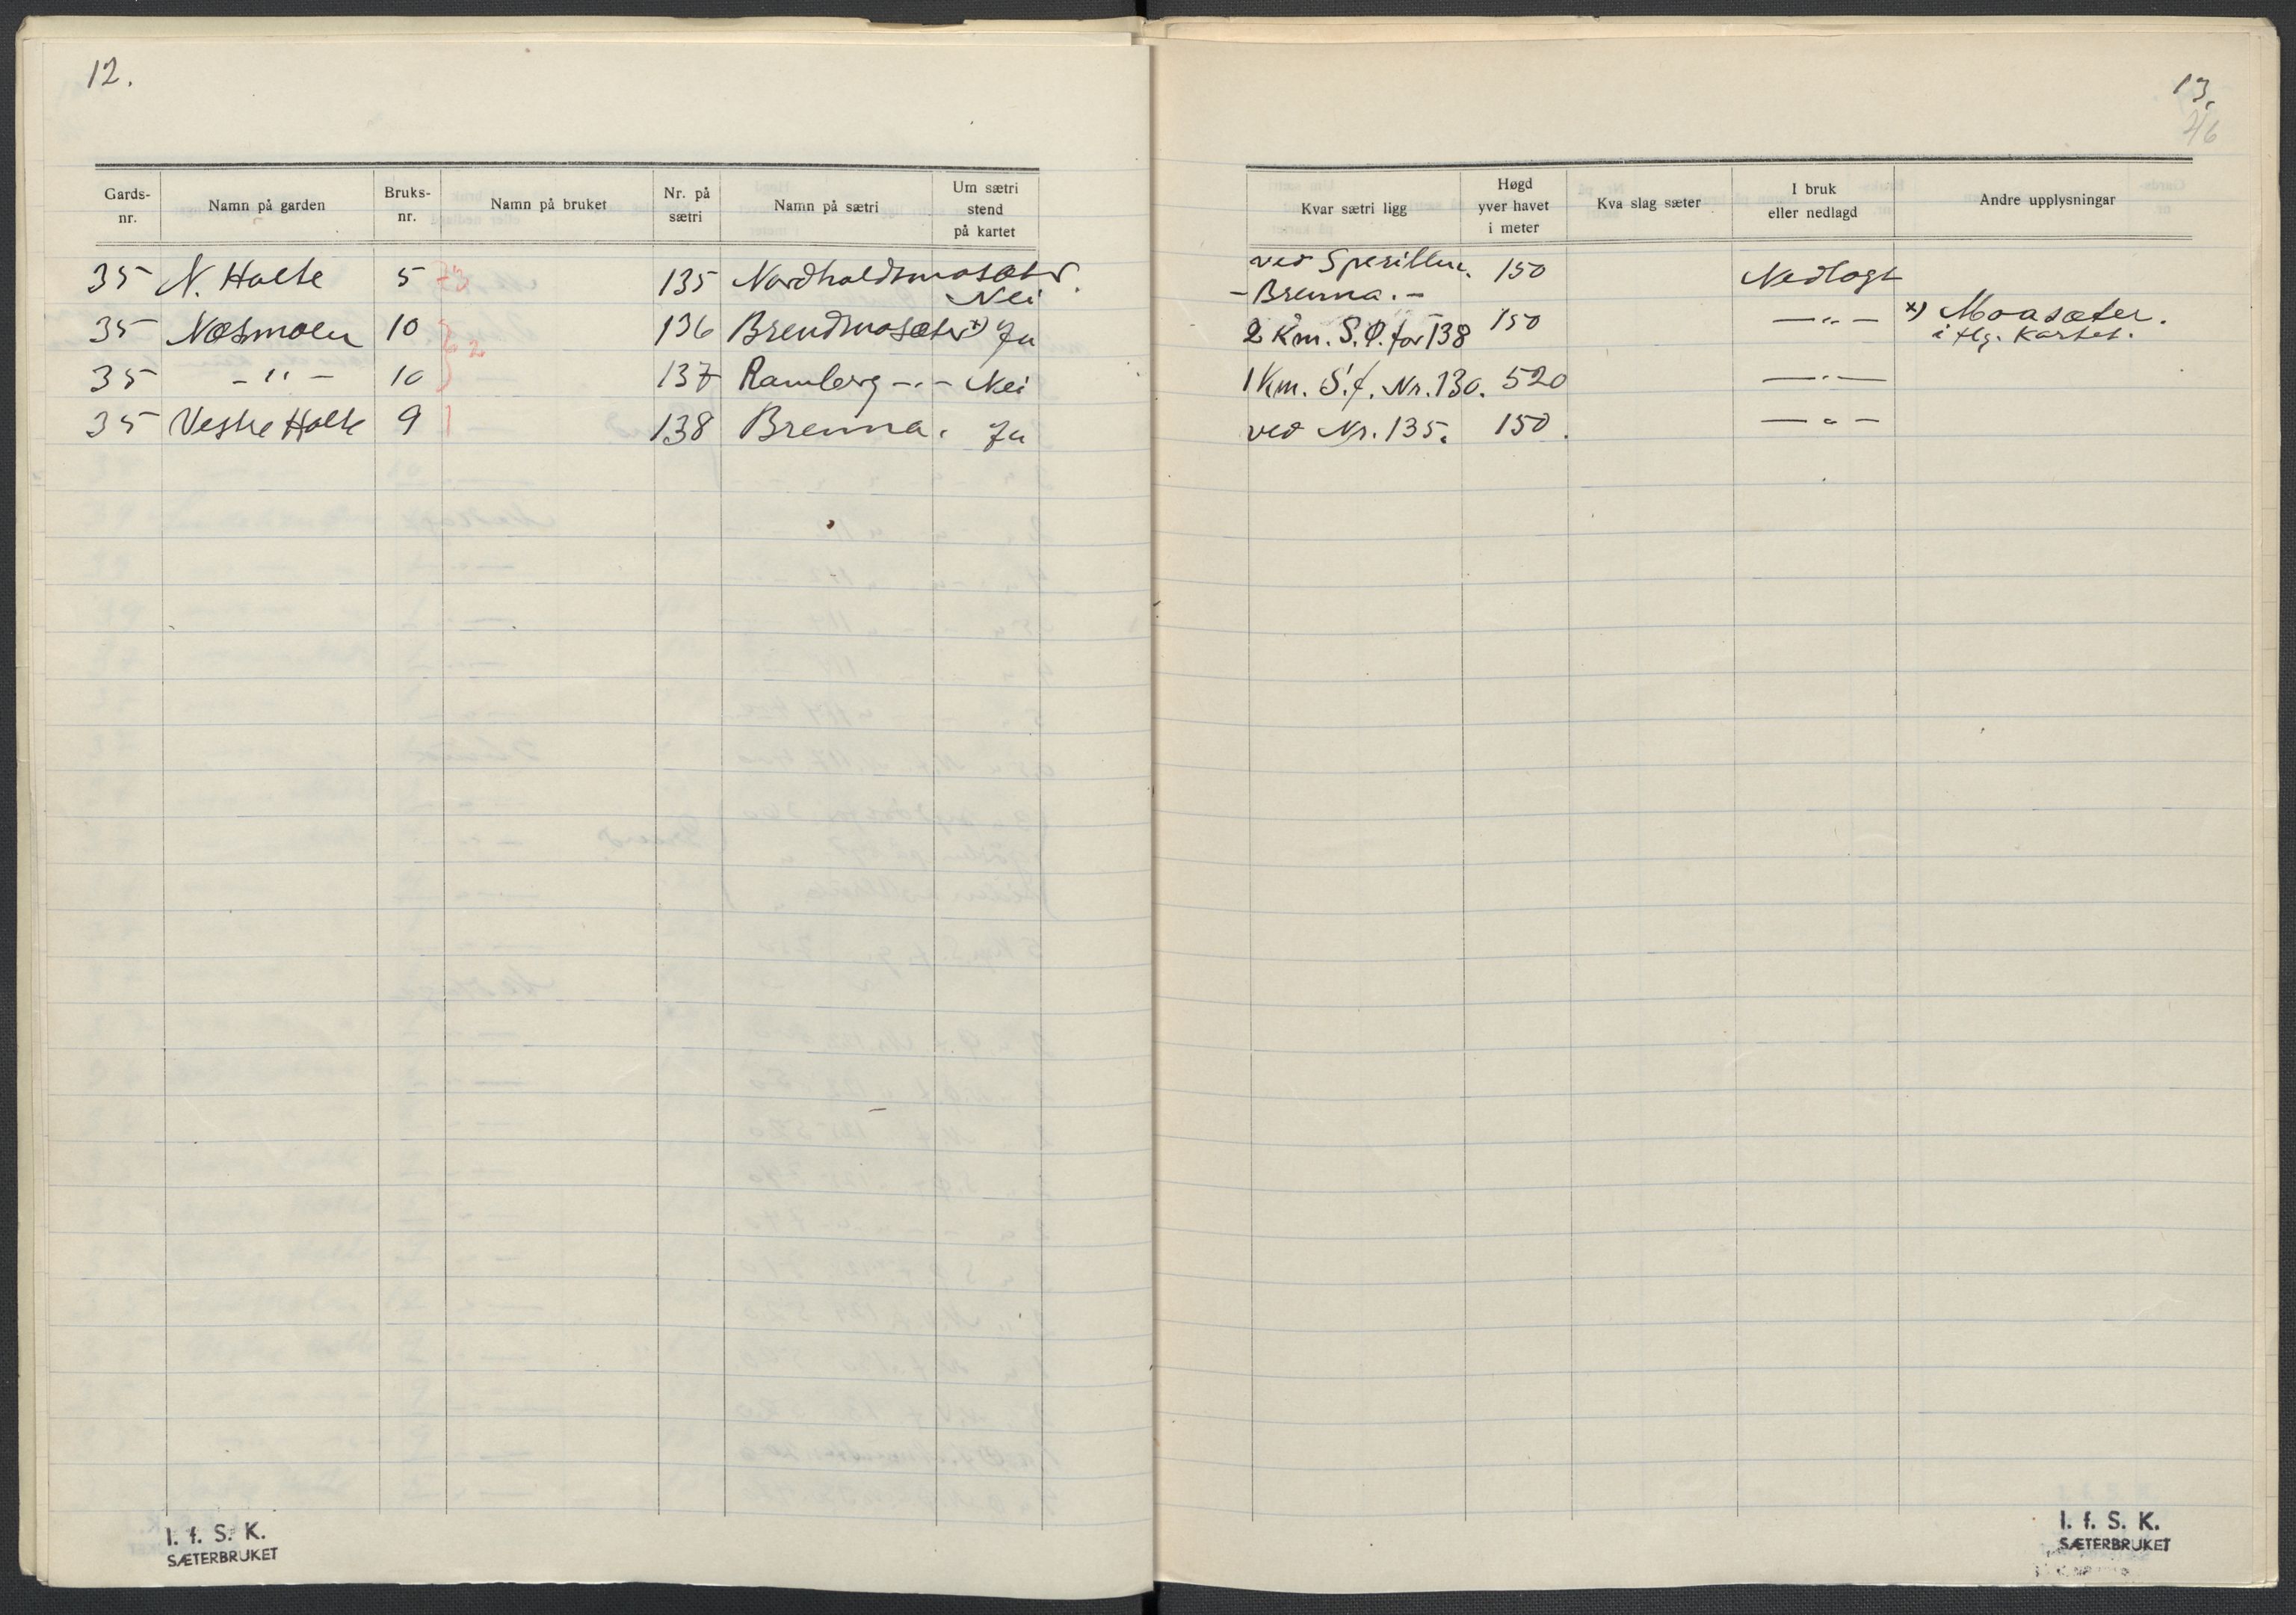 12.
Gards-nr. Namn på garden Bruks-nr. Namn på bruket Nr. på sætri Namn på sætri Um sætri stend på kartet
35 N. Holte 5 135 Nordholdsmosæter. Nei
35 Næsmoen 10 136 Brendmosæter x) Ja
35 -"- 10 2 137 Ramberg -"- Nei
35 Vestre Holte 9 1 138 Brenna. Ja
I. f. S. K.
SÆTERBRUKET
13.
46
Kvar sætri ligg Høgd yver havet i meter Kva slag sæter I bruk eller nedlagd Andre upplysningar
ved Sperillen. 150 Nedlagt
-Brenna.-
2 Km. S.Ø. for 138 150 -"- x) Moasæter.
i flg. Kartet.
1 Km. S.f. Nr. 130. 520 -"-
ved Nr. 135. 150. -"-
I. f. S. K.
SÆTERBRUKET